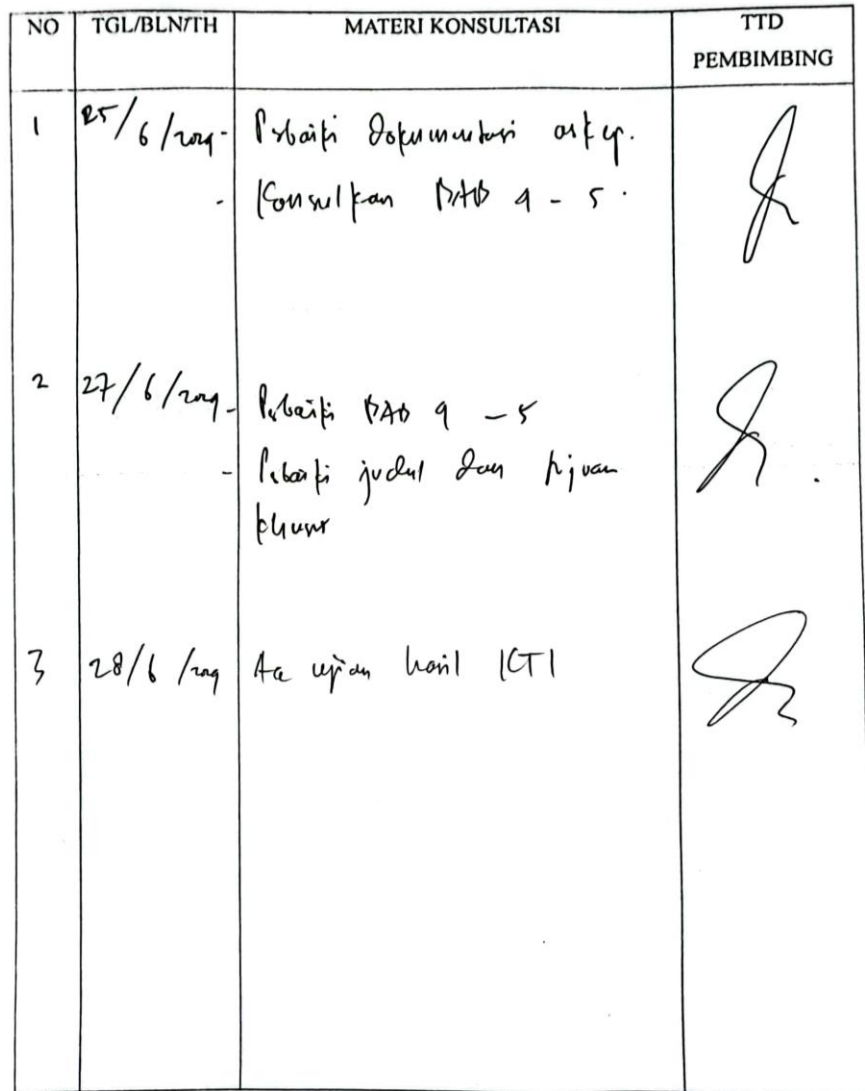 NO TGL/BLN/TH MATERI KONSULTASI TTD
PEMBIMBING
1 25/6/2024 - Perbaiki dokumentasi askep.
- Konsulkan BAB 4 - 5.
2 27/6/2024 - Perbaiki BAB 4 - 5
- Perbaiki judul dan tujuan
khusus
3 28/6/2024 Acc ujian hasil KTI